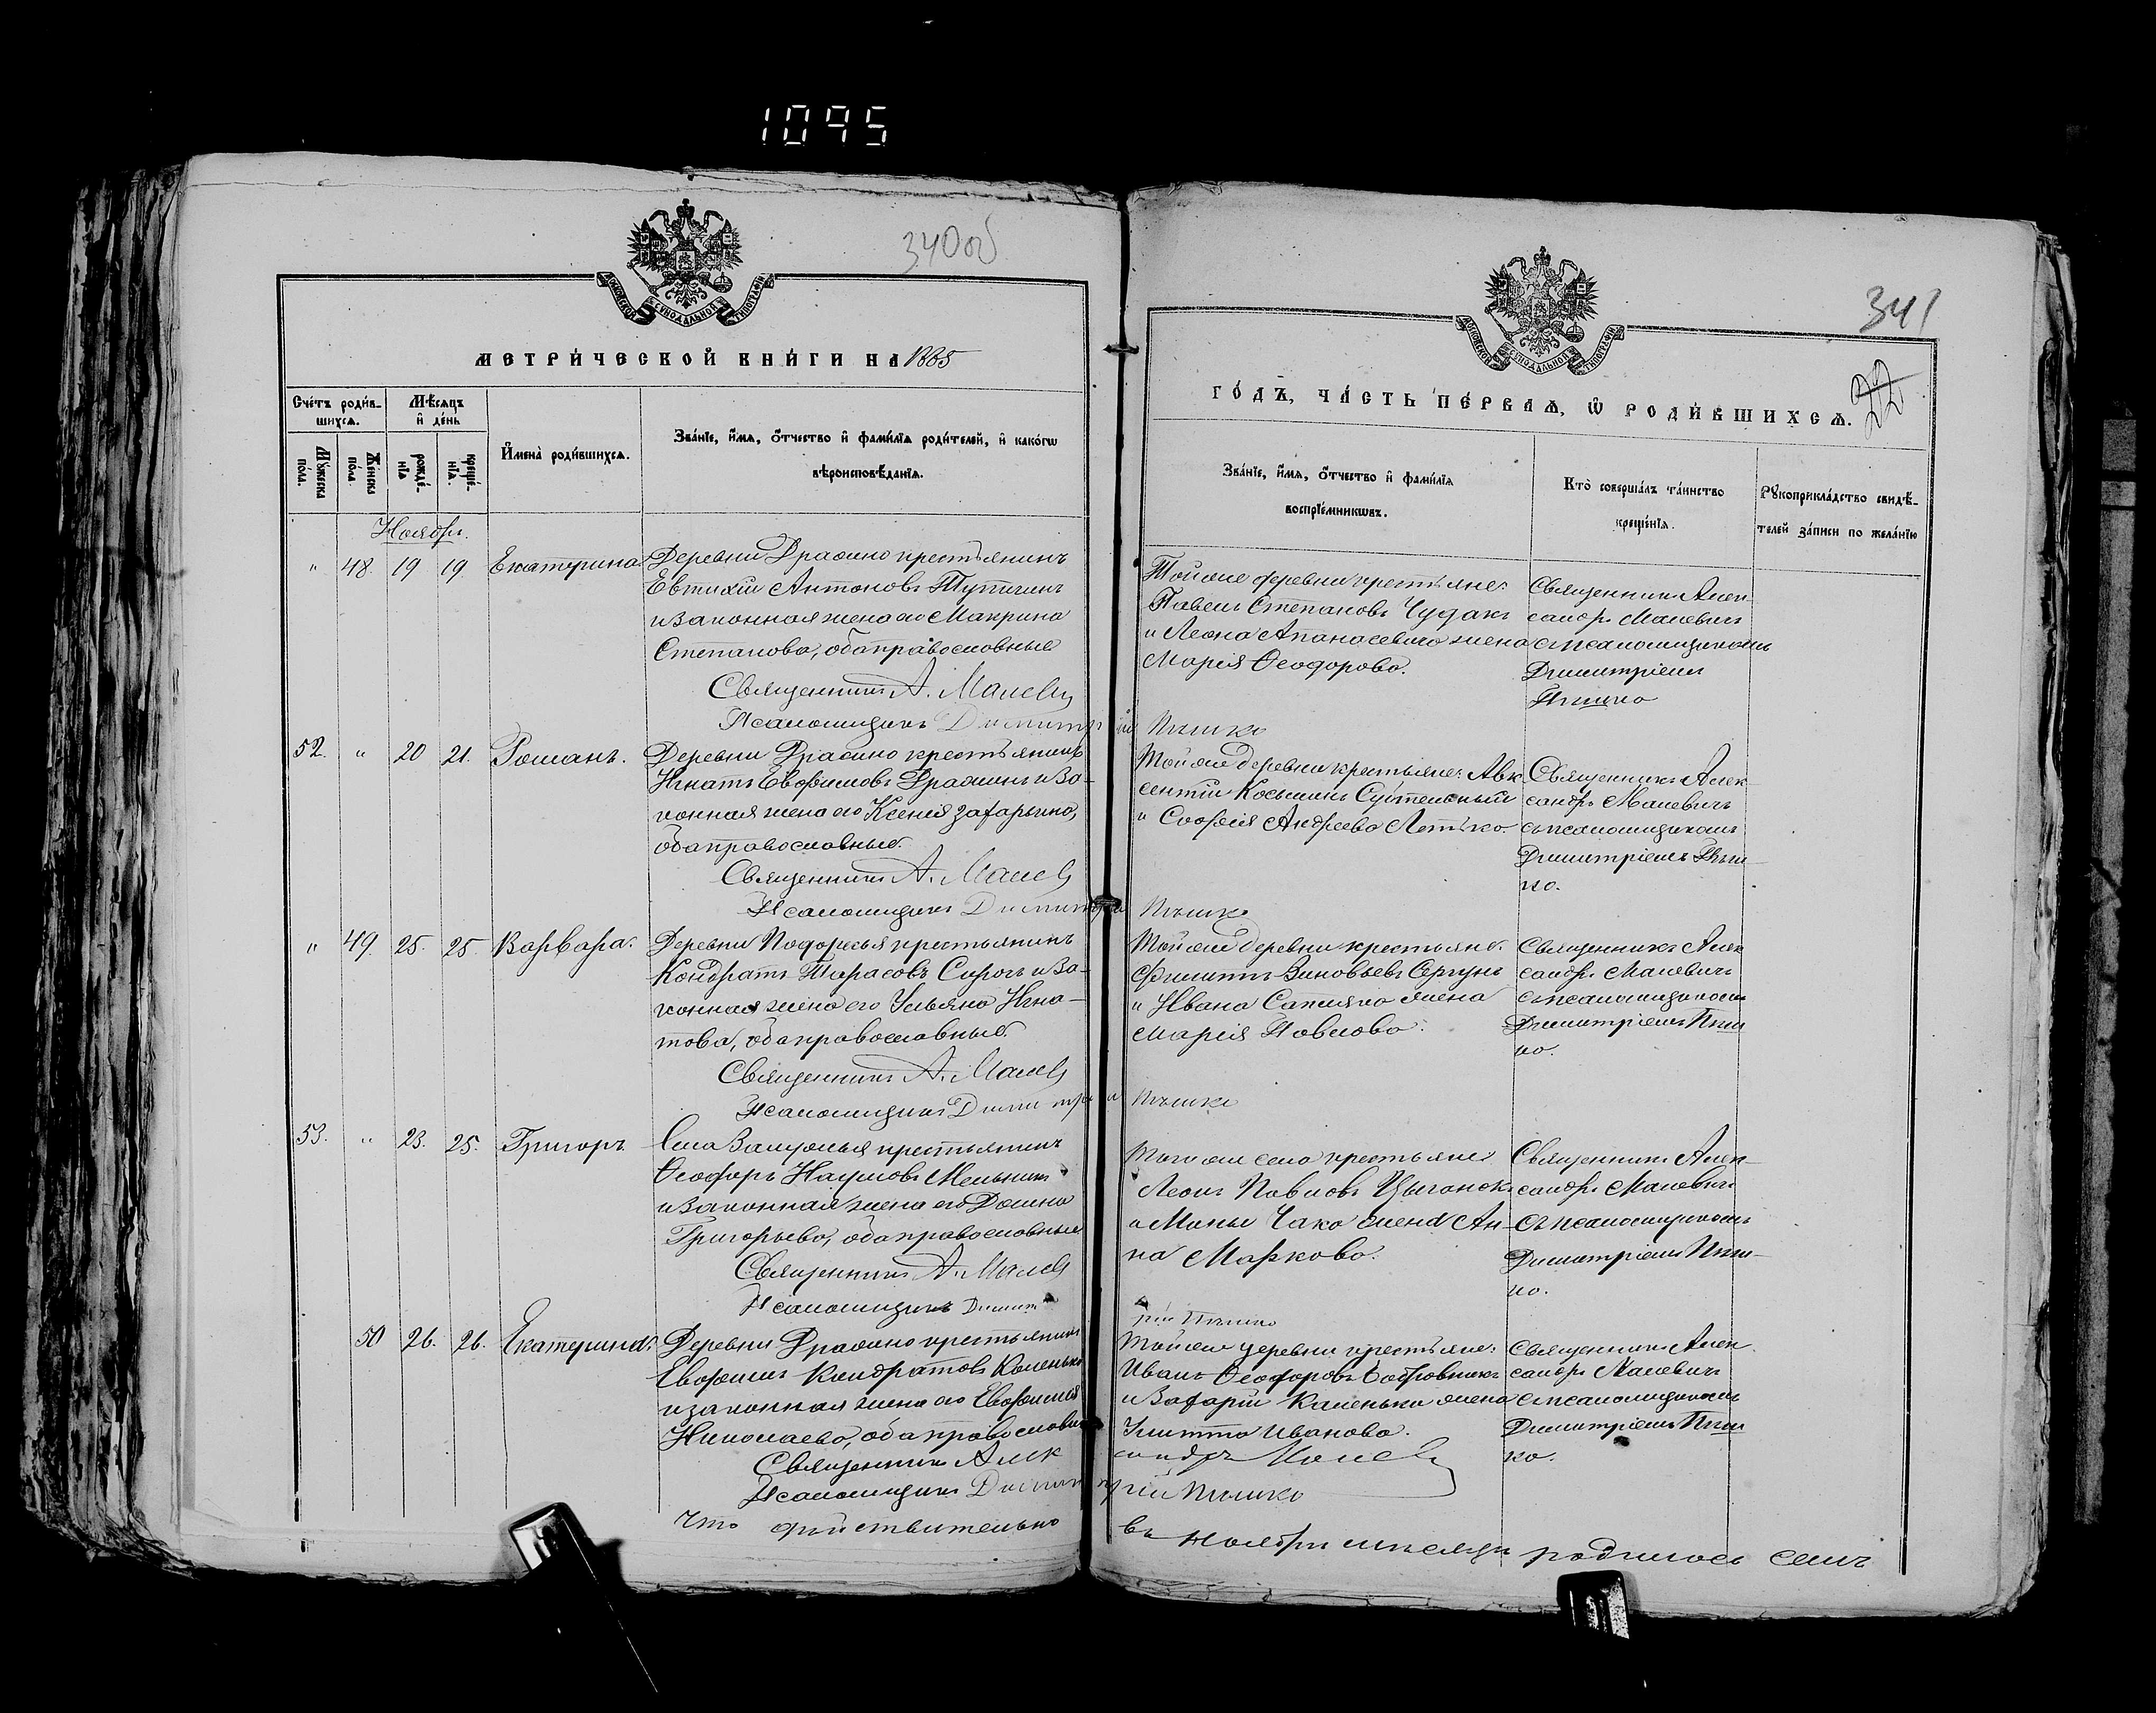 1095
340об
МОСКОВСКОЙ СѴНОДАЛЬНОЙ ТИПОГРАФІИ
МЕТРИ́ЧЕСКОЙ КНИ́ГИ НА 1885
Сче́тъ роди́в-
шихсѧ.
Мѣ́сѧцъ
и҆ де́нь
Мꙋ́жеска
по́ла.
Же́нска
по́ла.
рожде́-
нїѧ
креще́-
нїѧ.
И҆мена̀ роди́вшихсѧ.
Зва́нїе, и҆́мѧ, ѻ҆́тчество и҆ фами́лїѧ роди́телей, и҆ како́гѡ
вѣроисповѣ́данїѧ.
Ноябрь.
" 48. 19 19 Екатерина Деревни Дражно крестьянинъ
Евтихій Антоновъ
и законная жена его Макрина
Степанова, оба православные
Священникъ А. Малевичъ
Псаломщикъ Димитрій Пышко
52. " 20 21. Романъ. Деревни Дражно крестьянинъ
Игнатъ Евфимовъ Дражинъ и за-
конная жена его Ксенія Захарьина,
оба православные.
Священникъ А. Малевичъ
Псаломщикъ Димитрій Пышко
" 49. 25. 25. Варвара. Деревни Подоресья крестьянинъ
Кондратъ Тарасовъ и за-
конная жена его Ульяна Игна-
това, оба православные.
Священникъ А. Малевичъ
Псаломщикъ Димитрій Пышко
53. " 23. 25. Григоръ Села крестьянинъ
Ѳеодоръ Наумовъ Мельникъ
и законная жена его Домна
Григорьева, оба православные
Священникъ А. Малевичъ
Псаломщикъ Димитрій Пышко
50 26. 26. Екатерина. Деревни Дражно крестьянинъ
Евфимъ Кондратовъ Каменько
и законная жена его Евфимія
Николаева, оба православные
Священникъ Александръ Малевичъ
Псаломщикъ Димитрій Пышко
Что действительно
341
22
МОСКОВСКОЙ СѴНОДАЛЬНОЙ ТИПОГРАФІИ
ГО́ДЪ, ЧА́СТЬ ПЕ́РВАѦ, Ѡ҆ РОДИ́ВШИХСѦ.
Зва́нїе, и҆́мѧ, ѻ҆́тчество и҆ фами́лїѧ
воспрїе́мникѡвъ.
Кто̀ соверша́лъ та́инство
креще́нїѧ.
Рꙋкоприкла́дство свидѣ́-
телей за́писи по жела́нїю
Той же деревни крестьяне:
Павелъ Степановъ Чудакъ
и Леона Апанасевича жена
Марія Ѳеодорова.
Священникъ Алек-
сандръ Малевичъ
съ псаломщикомъ
Димитріемъ
Пышко
Той же деревни крестьяне: Авк-
сентій Косьминъ
и Софія Андреева Летько.
Священникъ Алек-
сандръ Малевичъ
съ псаломщикомъ
Димитріемъ Пыш-
ко.
Той же деревни крестьяне:
Филиппъ Зиновьевъ Сергунъ
и Ивана жена
Марія Павлова.
Священникъ Алек-
сандръ Малевичъ
съ псаломщикомъ
Димитріемъ Пыш-
ко.
Того же села крестьяне:
Леонъ Павловъ
и Мины Чако жена Ан-
на Маркова.
Священникъ Алек-
сандръ Малевичъ
съ псаломщикомъ
Димитріемъ Пыш-
ко.
Той же деревни крестьяне:
Иванъ Ѳеодоровъ Бобровникъ
и Захарія Каменьки жена
Улитта Иванова.
Священникъ Алек-
сандръ Малевичъ
съ псаломщикомъ
Димитріемъ Пыш-
ко.
въ Ноябрѣ мѣсяцѣ родилось семь